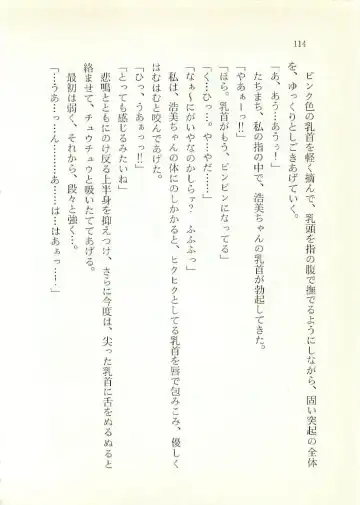 114
ピンク色の乳首を軽く摘んで、乳頭を指の腹で撫でるようにしながら、固い突起の全体
を、ゆっくりとしごきあげていく。
「あ、あう…あうぅ！」
たちまち、私の指の中で、浩美ちゃんの乳首が勃起してきた。
「やあぁーっ!!」
「ほら。乳首がもう、ピンピンになってる」
「く…ひっ…。や…やだ……」
「なぁ～にがいやなのかしらァ？　ふふふっ」
私は、浩美ちゃんの体にのしかかると、ヒクヒクとしてる乳首を唇で包みこみ、優しく
はむはむと咬んであげた。
「ひっ、うあぁっっ!!」
「とっても感じるみたいね」
悲鳴とともにのけ反る上半身を抑えつけ、さらに今度は、尖った乳首に舌をぬるぬると
絡ませて、チュウチュウと吸いたててあげる。
最初は弱く、それから、段々と強く…。
「…うあ…っ…ん………あ……は…はあぁっ…！